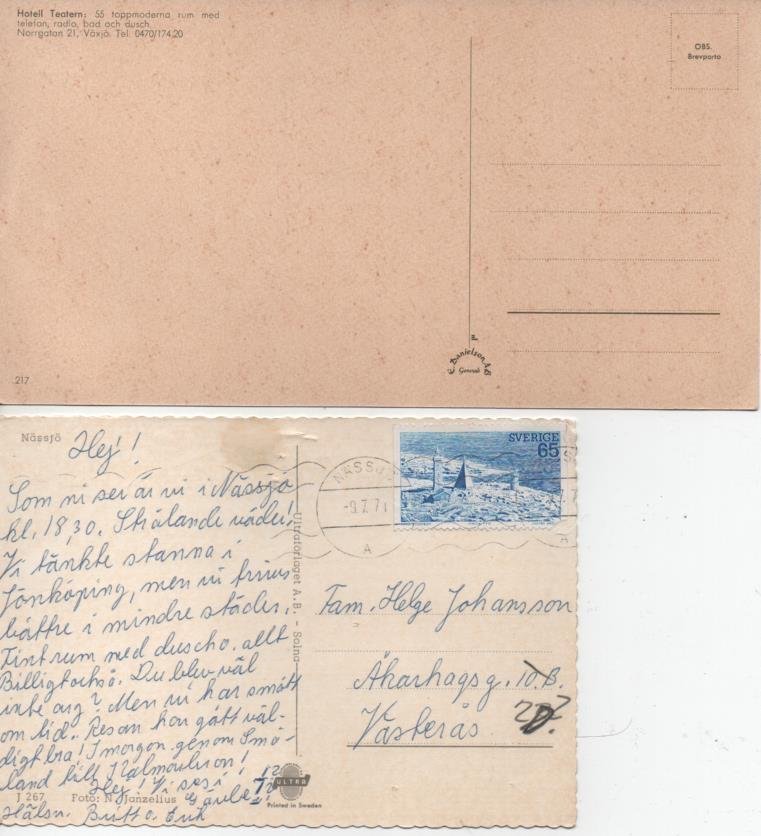 Hotell Teatern: 55 toppmoderna rum med
telefon, radio, bad och dusch.
Norrgatan 21, Växjö. Tel. 0470/174 20
OBS.
Brevporto
P
E. Danielson A.B
Generab
217
Nässjö
Hej!
Som ni ser är vi i Nässjö
kl. 18,30. Strålande väder!
Vi tänkte stanna i
Jönköping, men vi trivs
bättre i mindre städer.
Fint rum med dusch o. allt
Billigt också. Du blev väl
inte arg? Men vi har smått
om tid. Resan har gått väl-
digt bra! I morgon genom Små-
land till Kalmar
Hej! Vi ses i
Gävle!
Hälsn. Britt o. Erik
J 267 Foto: N. Janzelius
Ultraförlaget A.B. - Solna
ULTRA
Printed in Sweden
NÄSSJÖ
-9.7.7
A
SVERIGE
65
A
Fam. Helge Johansson
Åkarhagsg. 10 B.
Västerås